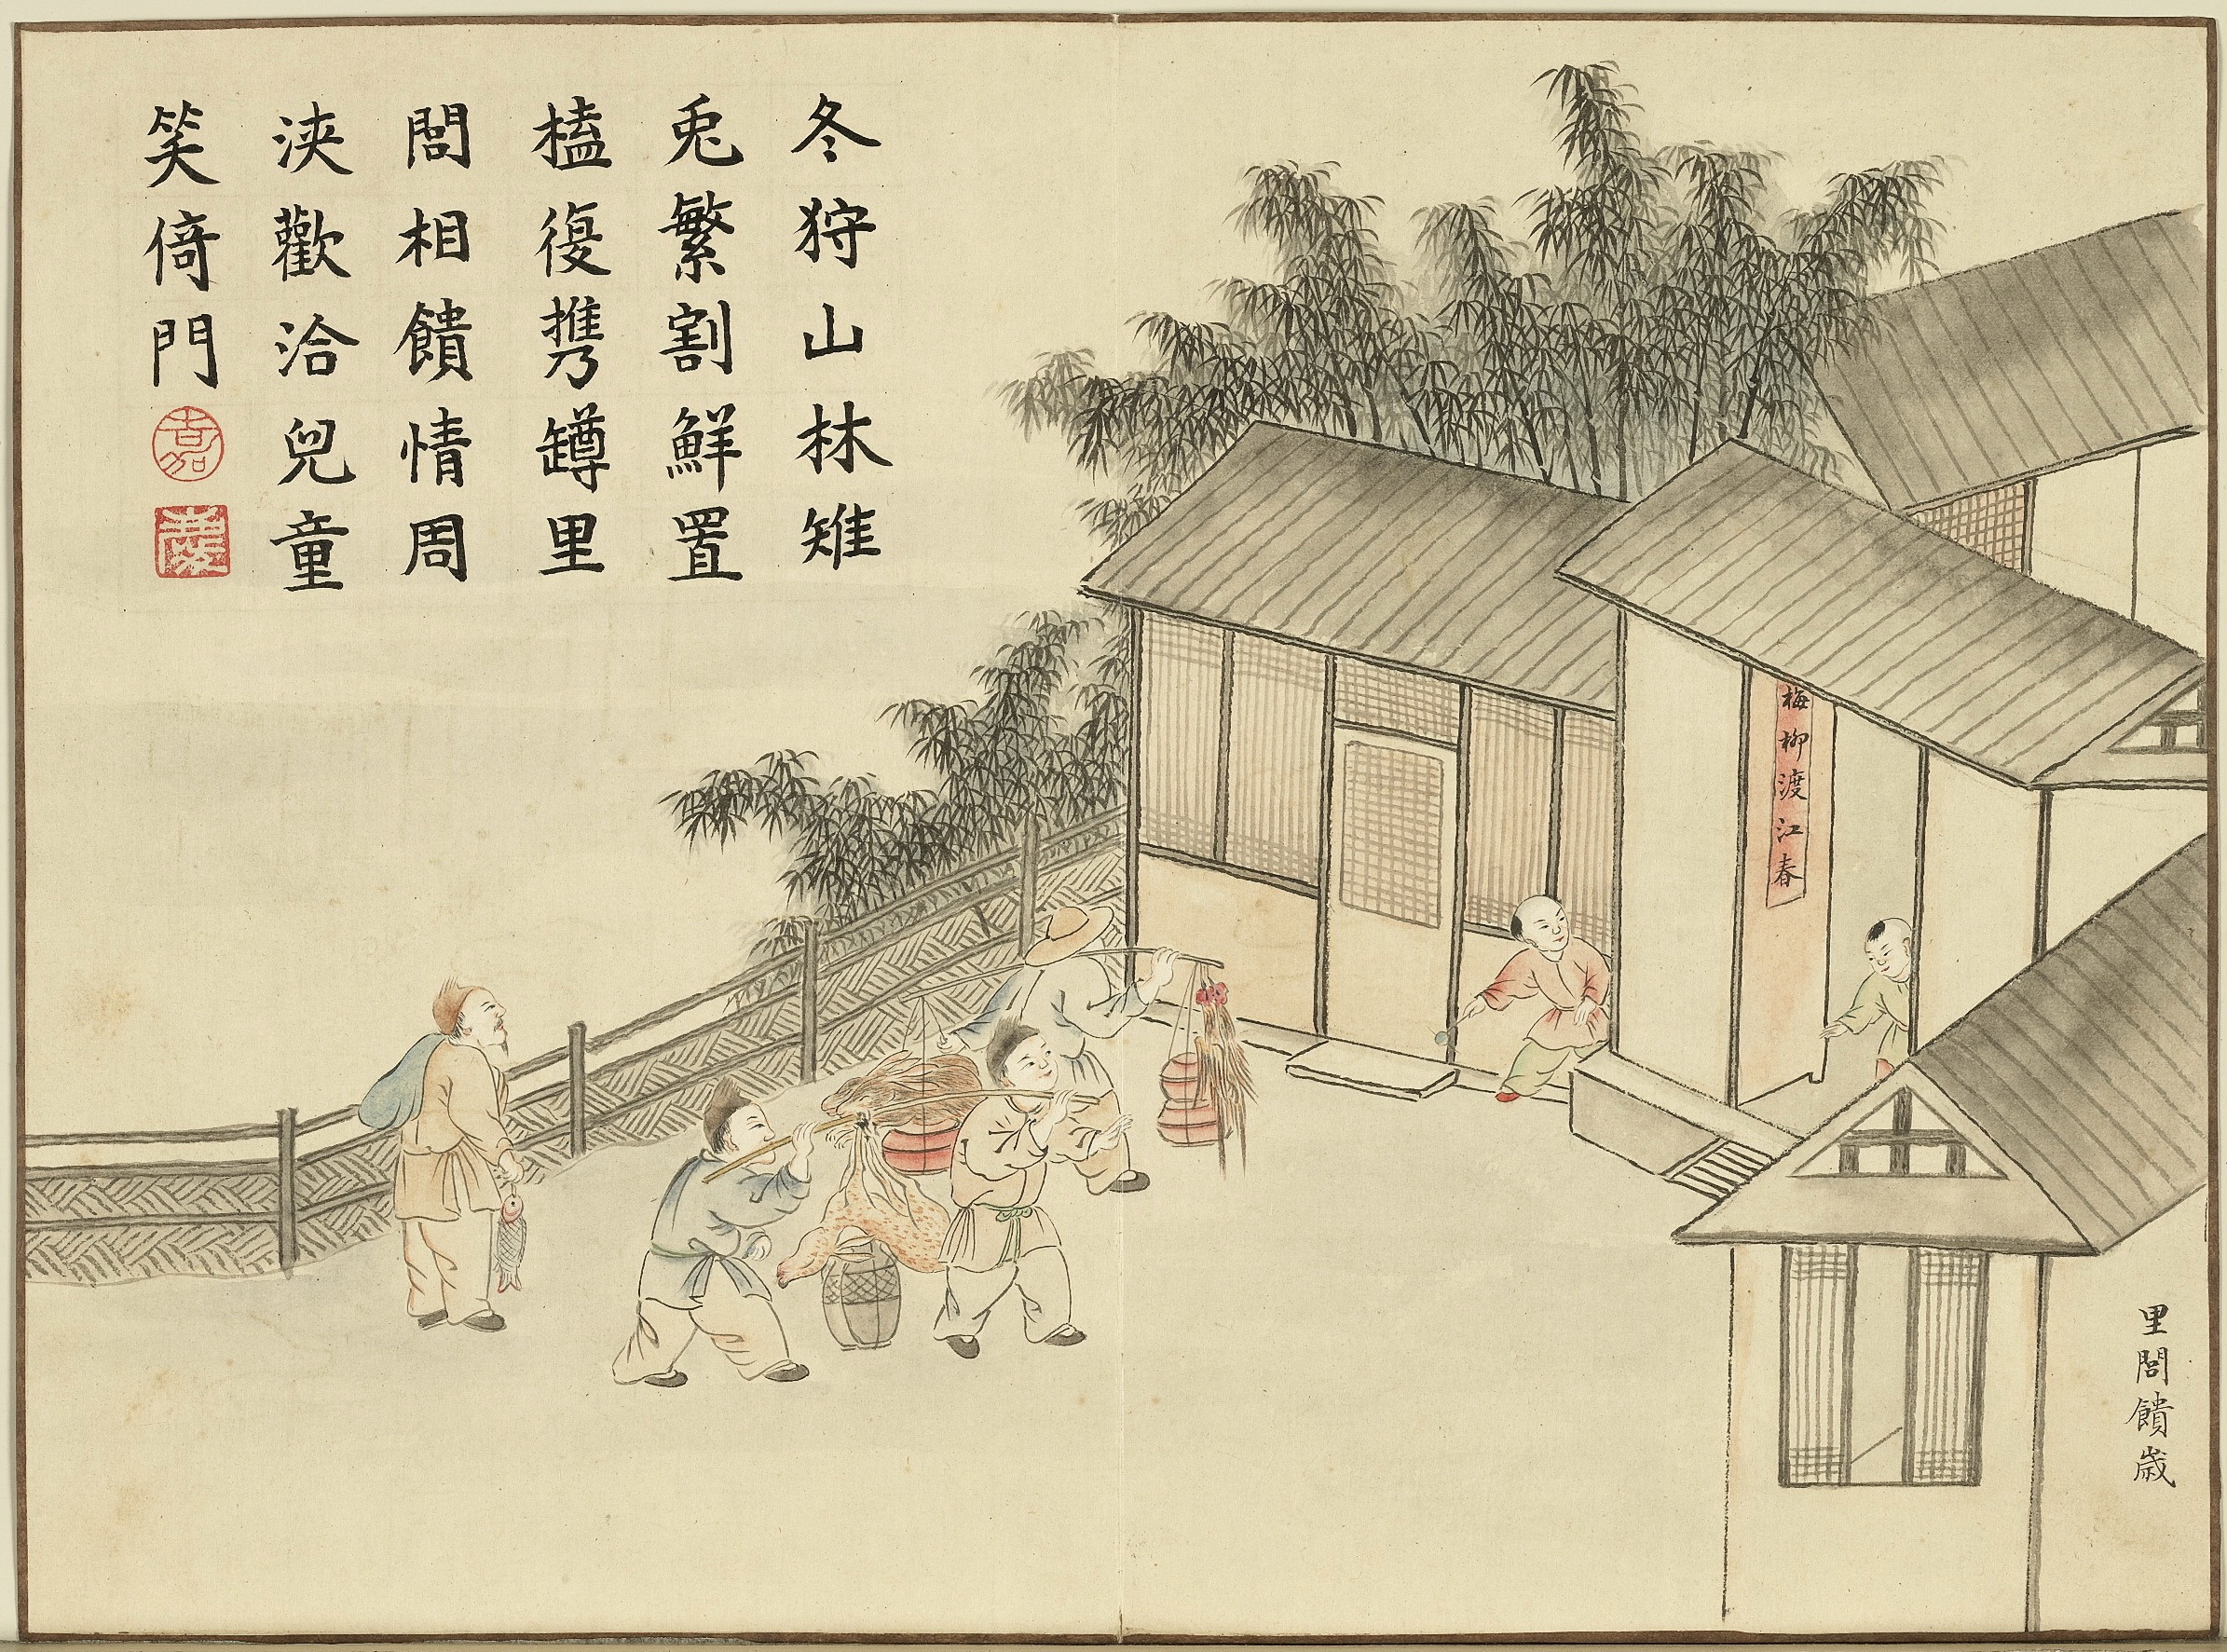 冬狩山林雉
兎繁割鮮置
榼復携罇里
閭相饋情周
浹歡洽兒童
笑倚門
嘉
梅柳渡江春
里閭饋歳